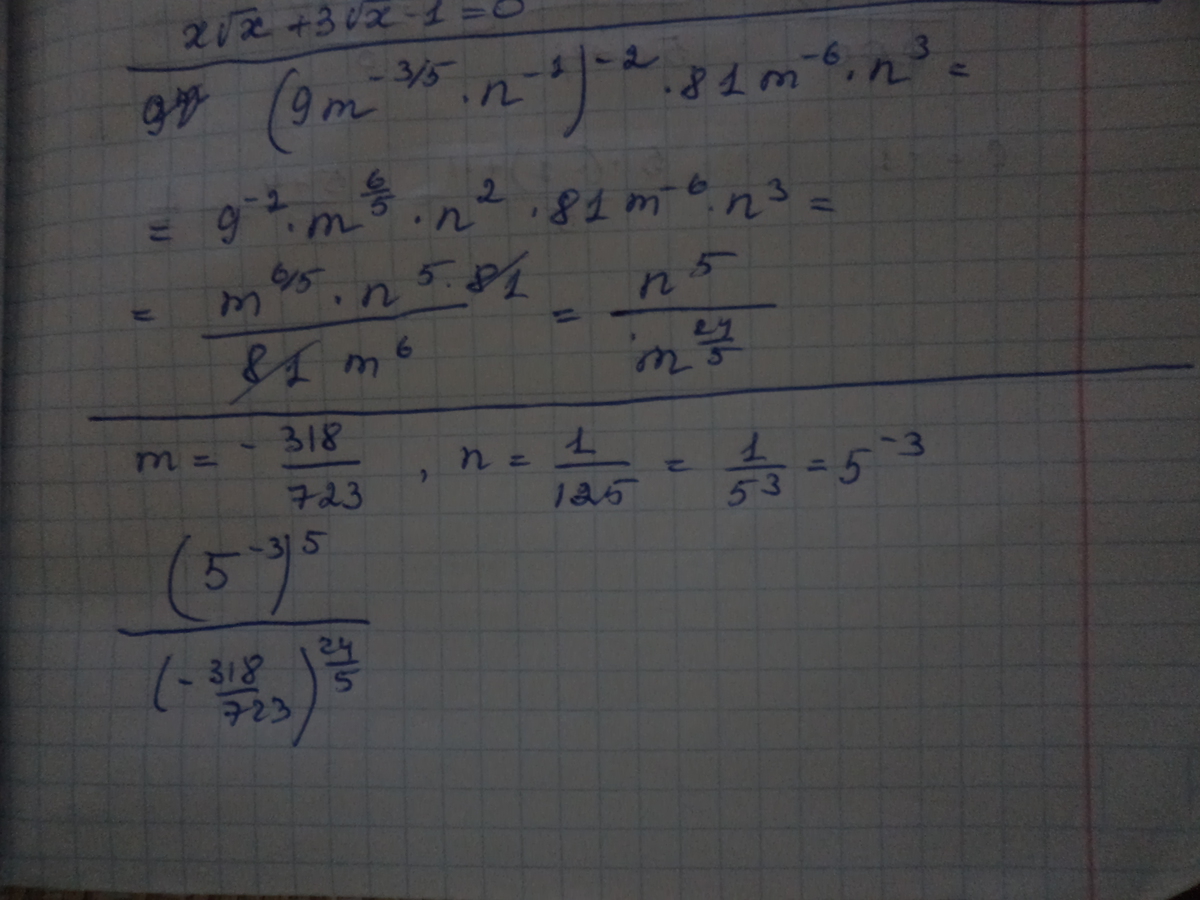 x√x + 3√x - 1 = 0
(9m^{-3/5} · n^{-1})^{-2} · 81m^{-6} · n^3 =
= 9^{-2} · m^{6/5} · n^2 · 81m^{-6} · n^3 =
= \frac{m^{6/5} · n^5 · 81}{81 m^6} = \frac{n^5}{m^{24/5}}
m = - \frac{318}{723} , n = \frac{1}{125} = \frac{1}{5^3} = 5^{-3}
\frac{(5^{-3})^5}{(-\frac{318}{723})^{24/5}}